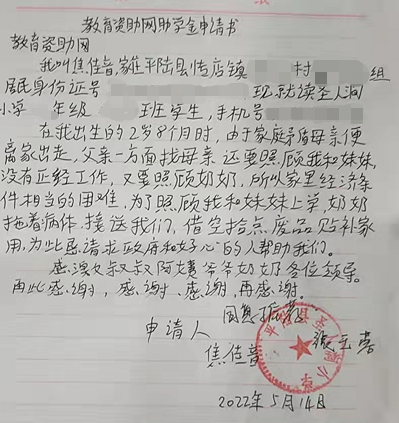 教育资助网助学金申请书
教育资助网
我叫焦佳音,家住平陆县张店镇 村 组
居民身份证号 班.就读圣人涧
小学 年级 班学生,手机号
在我出生的2岁8个月时,由于家庭矛盾母亲便
离家出走,父亲一方面找母亲还要照顾我和妹妹,
没有正经工作,又要照顾奶奶,所以家里经济条
件相当的困难,为了照顾我和妹妹上学,奶奶
拖着病体.接送我们,借空拾点废品,贴补家
用,为此恳请求政府和好心的人帮助我们。
感谢叔叔阿姨爷爷奶奶各位领导。
再此感谢,感谢、感谢,再感谢。
申请人
焦佳音
2022年5月14日